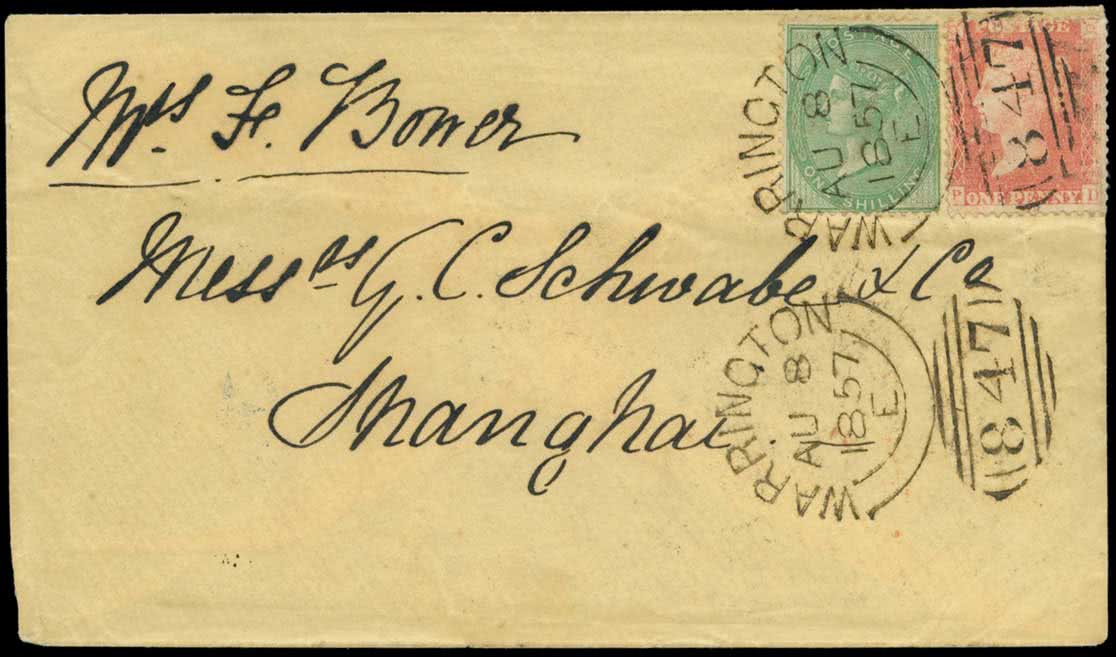 Mrs. F. Bower
Messrs G. C. Schwabe & Co
Shanghai.
POSTAGE
ONE SHILLING
POSTAGE
P ONE PENNY D
WARRINGTON
AU 8
1857
E
847
WARRINGTON
AU 8
1857
E
847